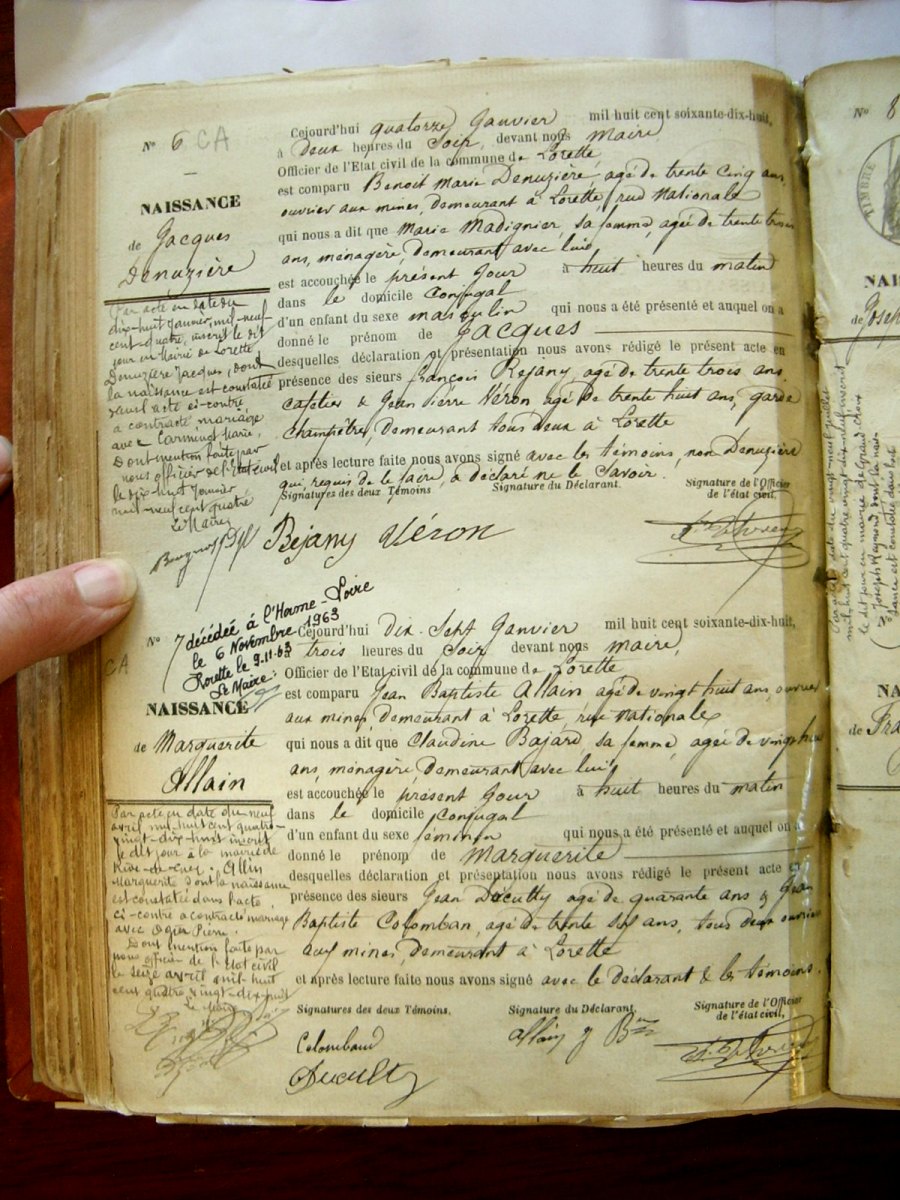 N° 6 CA
NAISSANCE
de Jacques
Denuzière
Par acte en date du
dix-huit Janvier mil-neuf-
cent-quatre, inscrit le dit
jour en Mairie de Lorette
Denuzière Jacques, dont
la naissance est constatée
dans l'acte ci-contre
a contracté mariage
avec Marie,
Dont mention faite par
nous officier de l'Etat civil
le dix-huit Janvier
mil-neuf cent quatre
Le Maire
Cejourd'hui quatorze Janvier mil huit cent soixante-dix-huit,
à deux heures du Soir, devant nous Maire
Officier de l'Etat civil de la commune de Lorette,
est comparu Benoit Marie Denuzière agé de trente cinq ans,
ouvrier aux mines, demeurant à Lorette, rue Nationale
qui nous a dit que Marie Madignier, sa femme, agée de trente trois
ans, ménagère, demeurant avec lui,
est accouchée le présent Jour à huit heures du matin
dans le domicile conjugal
d'un enfant du sexe masculin qui nous a été présenté et auquel on a
donné le prénom de Jacques
desquelles déclaration et présentation nous avons rédigé le présent acte en
présence des sieurs François Bejany agé de trente trois ans
cafetier & Jean Pierre Véron agé de trente huit ans, garde
champêtre, demeurant tous deux à Lorette
et après lecture faite nous avons signé avec les témoins, non Denuzière
qui, requis de le faire, a déclaré ne le Savoir.
Signatures des deux Témoins Signature du Déclarant. Signature de l'Officier
de l'état civil,
Bejany Véron
N° 7 décédée à l'Horme-Loire
le 6 Novembre 1963
Lorette le 9.11.63
Le Maire:
CA
NAISSANCE
de Marguerite
Allain
Par acte en date du neuf
avril mil-huit cent quatre-
vingt-dix-huit inscrit
le dit jour à la mairie de
Rive-de-Gier. Allin
Marguerite dont la naissance
est constatée dans l'acte
ci-contre a contracté mariage
avec Ogier Pierre.
Dont mention faite par
nous officier de l'Etat civil
le seize avril mil huit
cent quatre vingt-dix-huit
Le Maire
Cejourd'hui dix Sept Janvier mil huit cent soixante-dix-huit,
à trois heures du Soir devant nous maire,
Officier de l'Etat civil de la commune de Lorette
est comparu Jean Baptiste Allain agé de vingt huit ans, ouvrier
aux mines, demeurant à Lorette, rue Nationale
qui nous a dit que Claudine Bajard, sa femme, agée de vingt huit
ans, ménagère, demeurant avec lui,
est accouchée le présent Jour à huit heures du matin
dans le domicile conjugal
d'un enfant du sexe féminin qui nous a été présenté et auquel on a
donné le prénom de Marguerite
desquelles déclaration et présentation nous avons rédigé le présent acte en
présence des sieurs Jean Décultty agé de quarante ans & Jean
Baptiste Colomban, agé de trente six ans, tous deux ouvriers
aux mines, demeurant à Lorette
et après lecture faite nous avons signé avec le déclarant & les témoins.
Signatures des deux Témoins, Signature du Déclarant Signature de l'Officier
de l'état civil,
Colomban Allain J Bte
N° 8
TIMBRE
NAI
de Josep
NA
de Fra